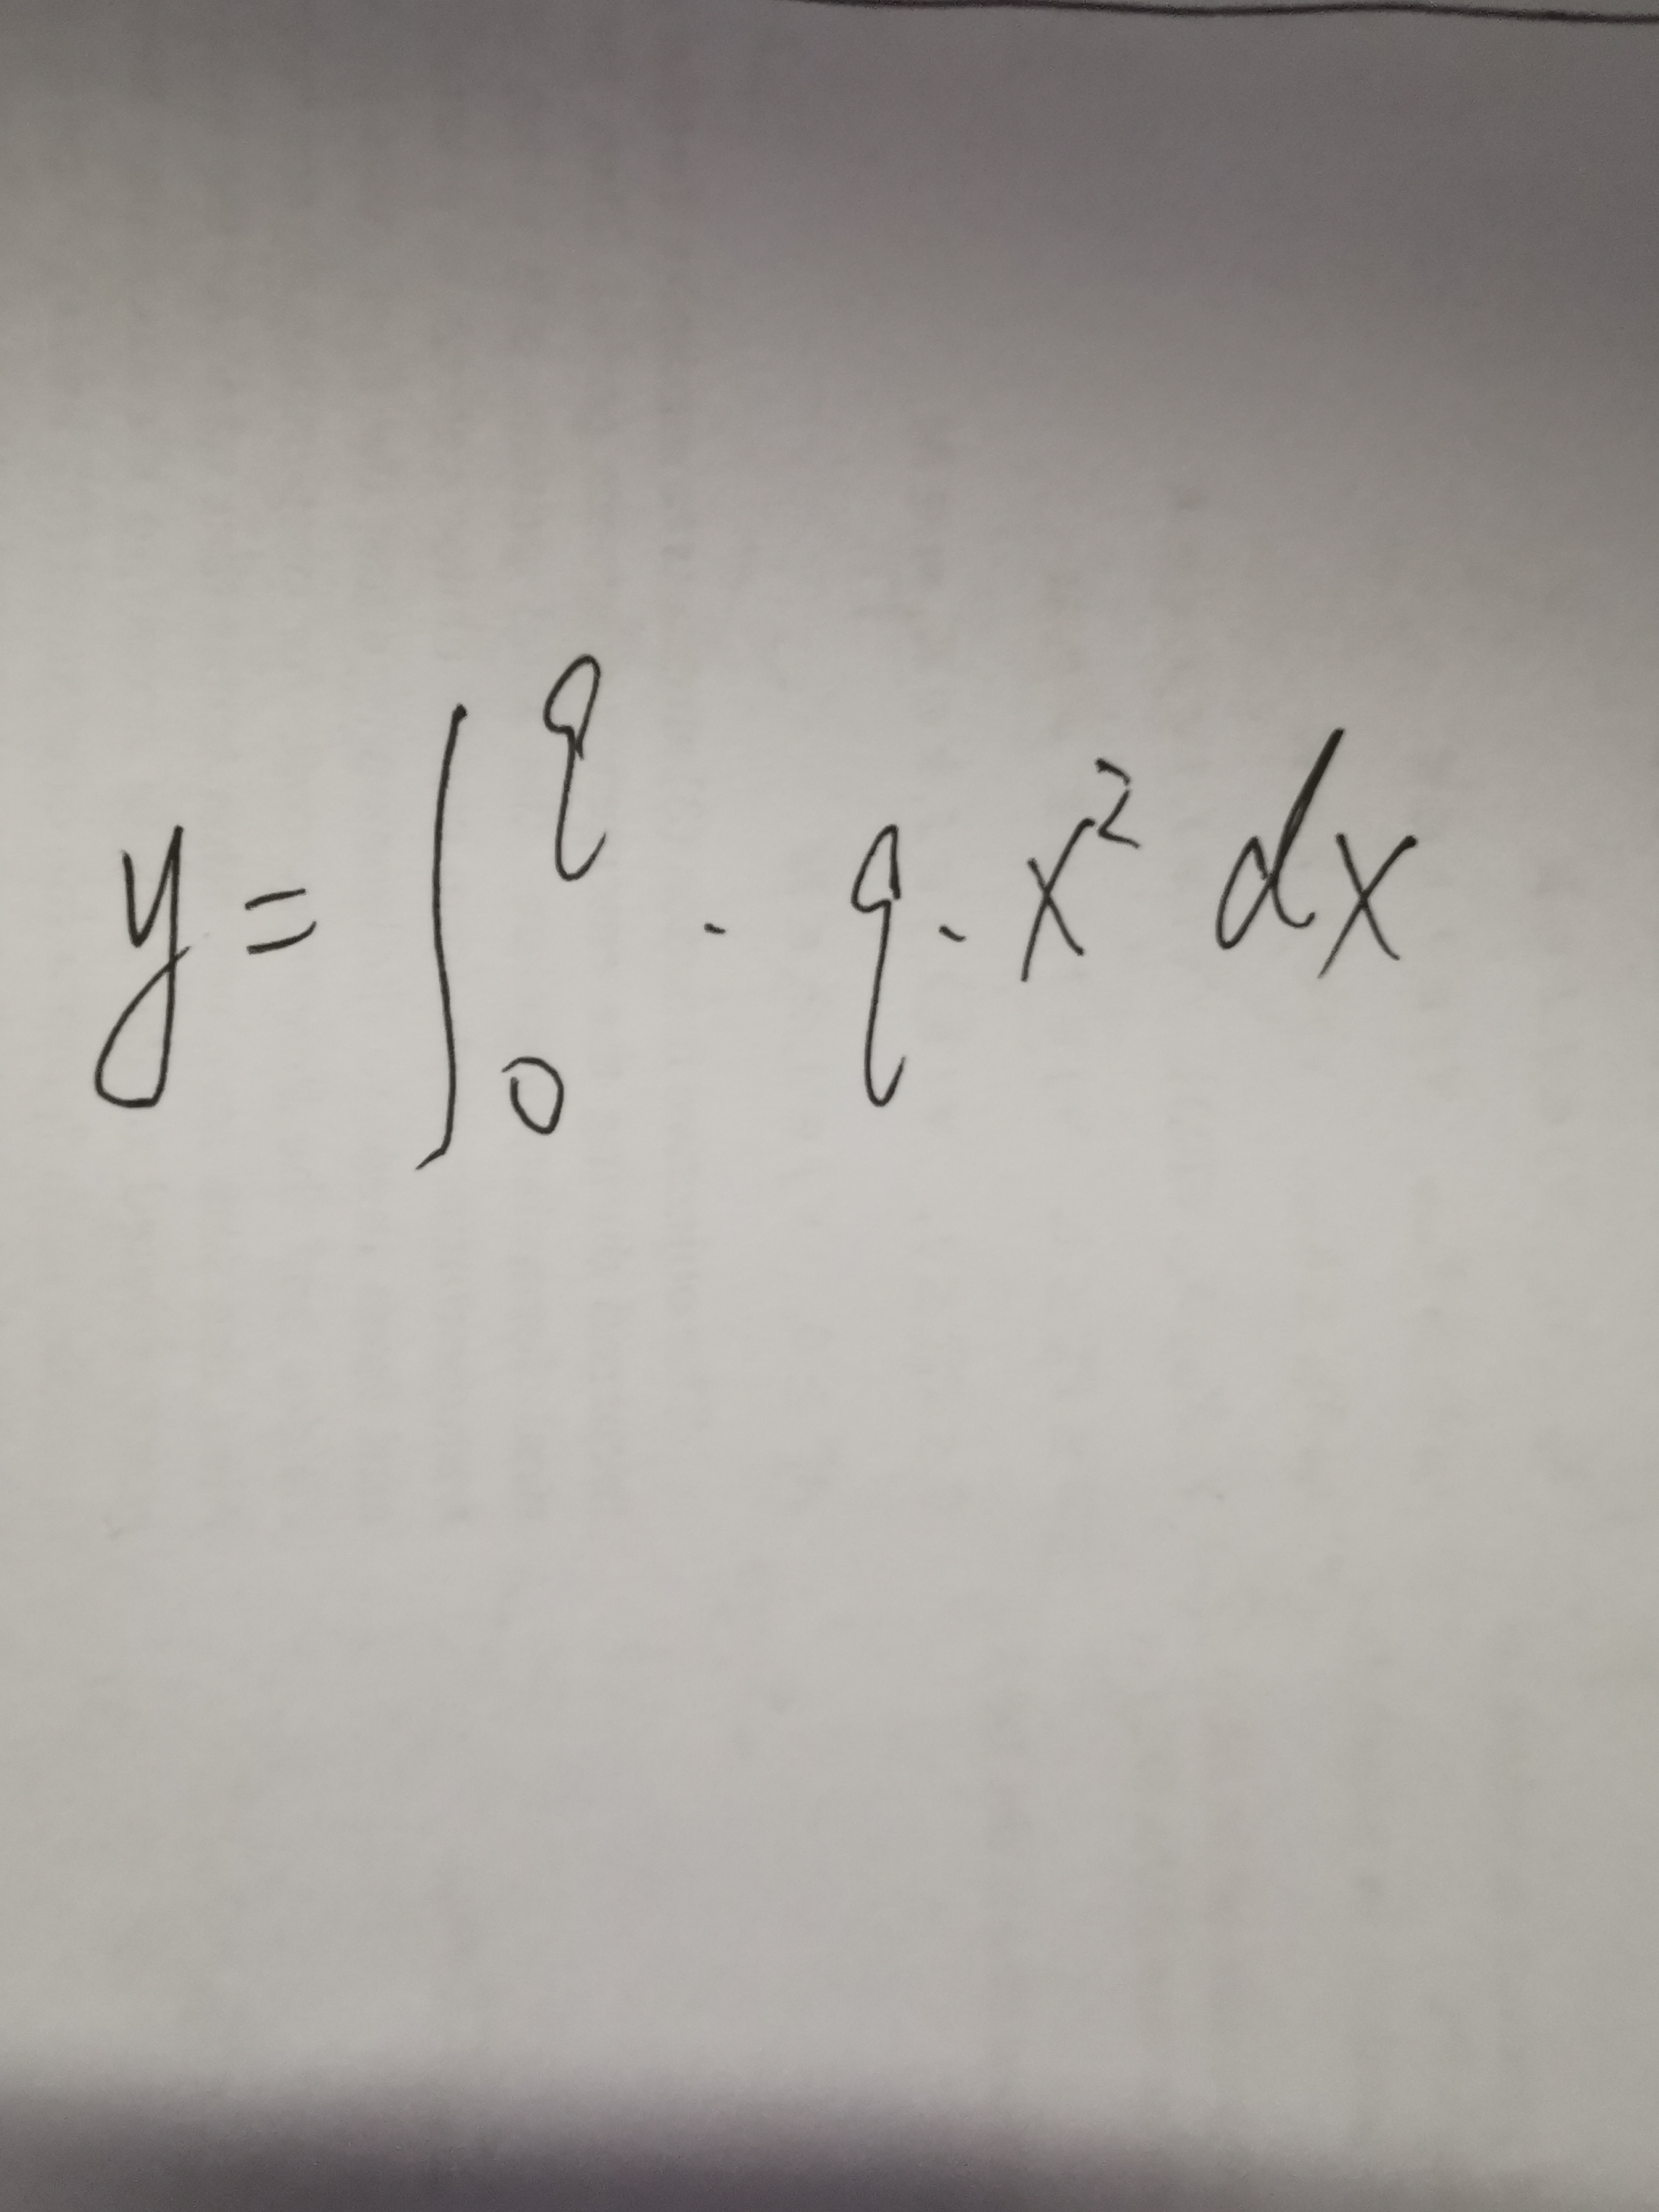 y = ∫₀^q · q · x² dx